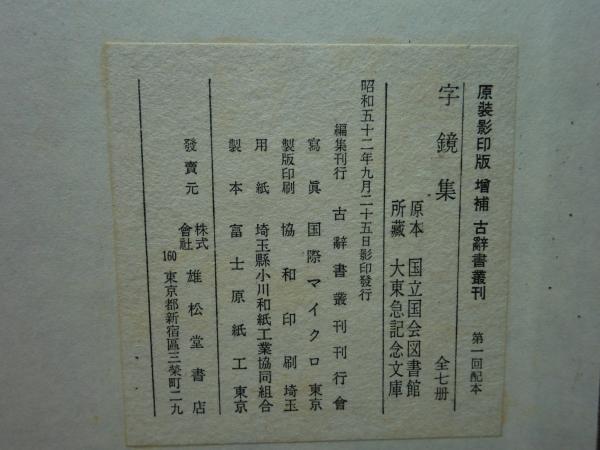 原装影印版 増補 古辭書叢刊 第一回配本
字鏡集 全七册
原本 国立国会図書館
所藏 大東急記念文庫
昭和五十二年九月二十五日影印發行
編集刊行 古辭書叢刊刊行會
寫眞 国際マイクロ 東京
製版印刷 協和印刷 埼玉
用紙 埼玉縣小川和紙工業協同組合
製本 富士原紙工 東京
發賣元 株式會社 雄松堂書店
160 東京都新宿區三榮町二九